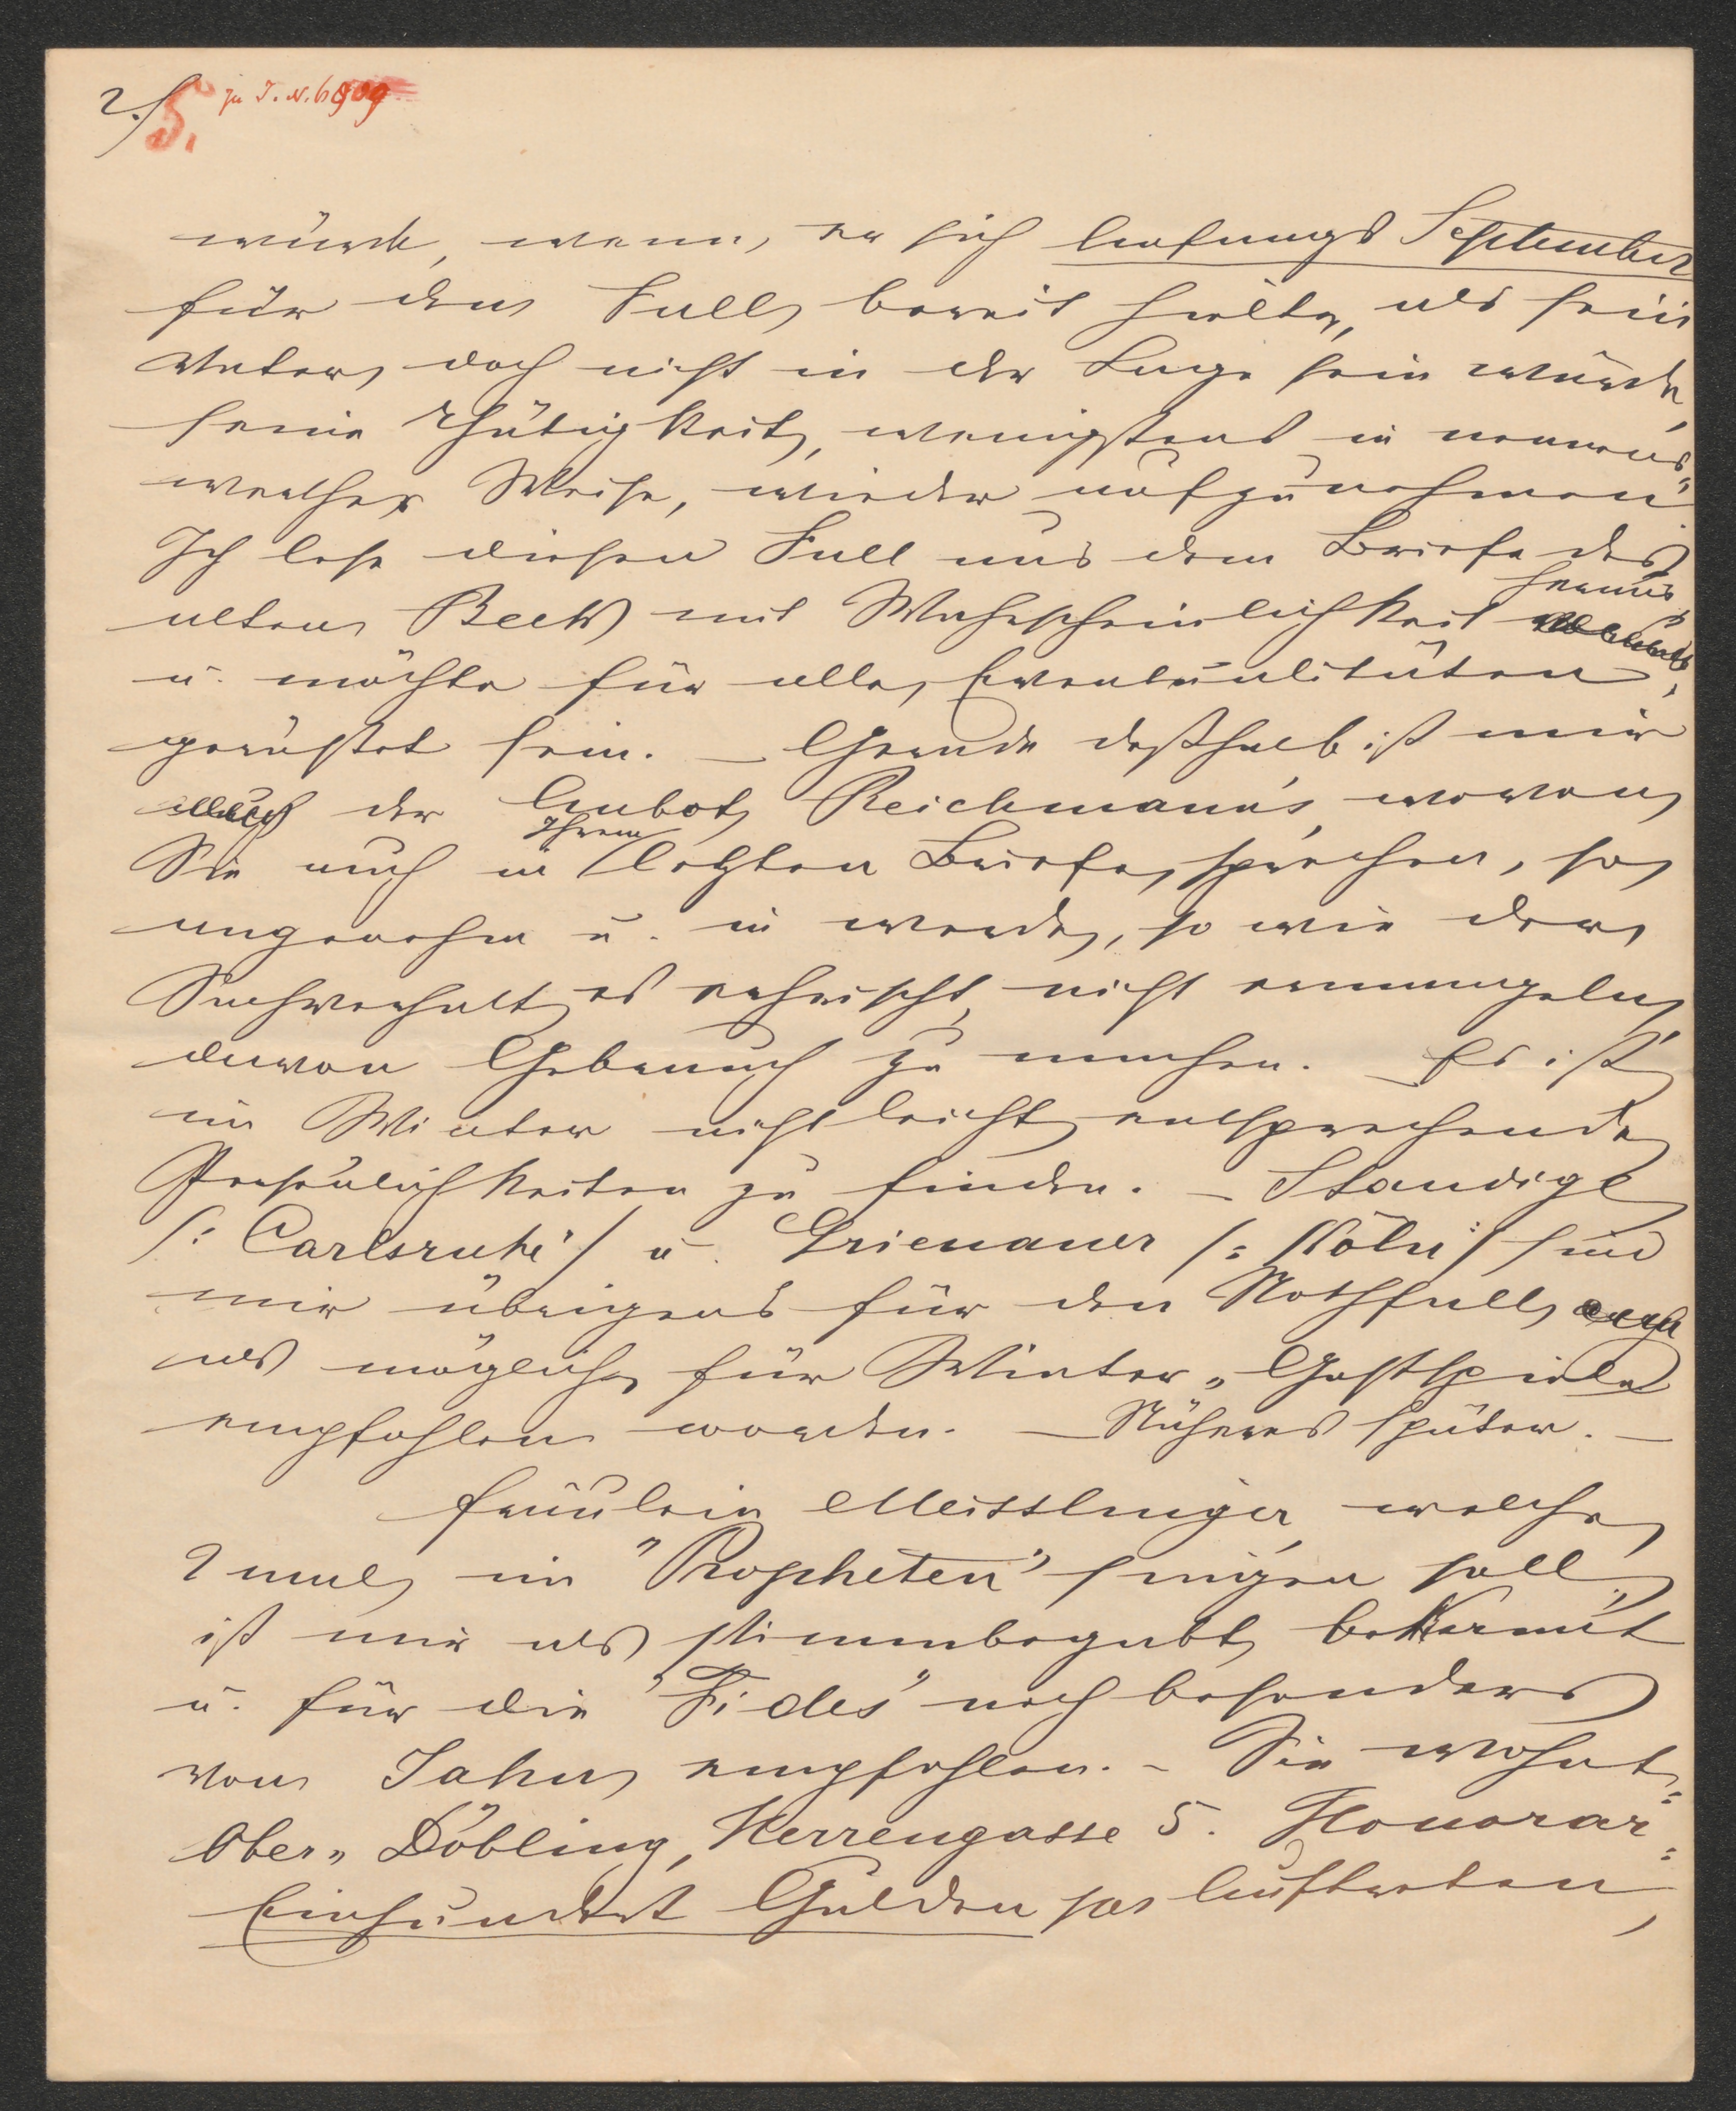 2./ 5. zu I. N. 6909
würde, wenn er sich Anfangs September
für den Fall bereit hielte, als sein
Vater doch nicht in der Lage sein würde
seine Thätigkeit, wenigstens in nennens
werther Weise, wieder aufzunehmen.
Ich lese diesen Fall aus dem Briefe des
alten Beck mit Wahrscheinlichkeit heraus
u. möchte für alle Eventualitäten
gerüstet sein. – Gerade deßhalb ist mir
auch der Anbot Reichmann's, wovon
Sie auch in Ihrem letzten Briefe sprechen, so
angenehm u. ich werde, so wie der
Sachverhalt es erheischt, nicht ermangeln
davon Gebrauch zu machen. – Es ist
im Winter nicht leicht entsprechende
Persönlichkeiten zu finden. – Staudigl
/: Carlsruhe :/ u. Grienauer /: Köln :/ sind
mir übrigens für den Nothfall auch
als mögliche für Winter-Gastspiele
empfohlen worden. – Näheres später. –
Fräulein Meisslinger, welche
2 mal im "Propheten" singen soll,
ist mir als stimmbegabt bekannt
u. für die "Fides" noch besonders
von Jahn empfohlen. – Sie wohnt:
Ober-Döbling, Herrengasse 5. Honorar:
Einhundert Gulden pro Auftreten,